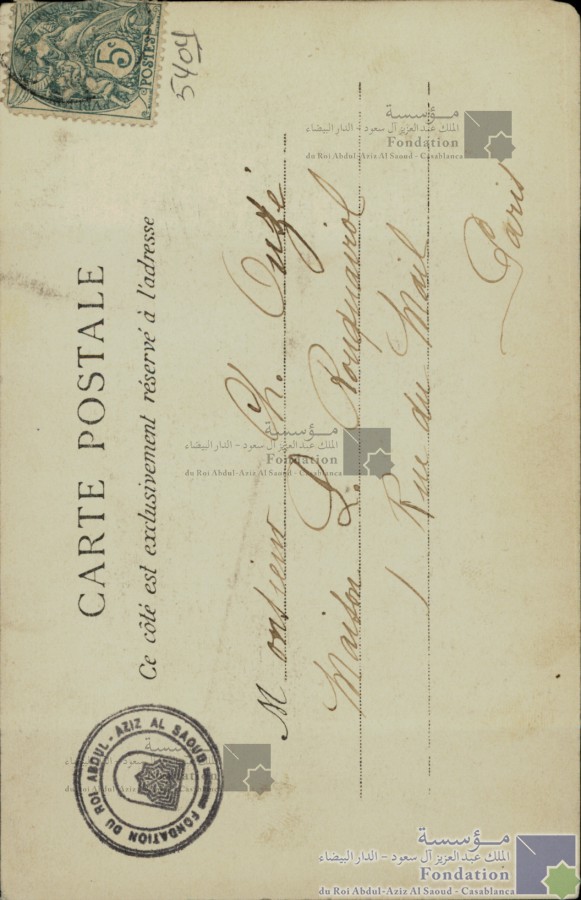 5c
POSTES
5404
CARTE POSTALE
Ce côté est exclusivement réservé à l'adresse
Monsieur Ch. Augé
Maison L. Rouquairol
1 Rue du Mail
Paris
FONDATION DU ROI ABDUL-AZIZ AL SAOUD
مؤسسة
الملك عبدالعزيز آل سعود - الدار البيضاء
Fondation
du Roi Abdul-Aziz Al Saoud - Casablanca
مؤسسة
الملك عبدالعزيز آل سعود - الدار البيضاء
Fondation
du Roi Abdul-Aziz Al Saoud - Casablanca
مؤسسة
Fondation
du Roi Abdul-Aziz
مؤسسة
الملك عبدالعزيز آل سعود - الدار البيضاء
Fondation
du Roi Abdul-Aziz Al Saoud - Casablanca